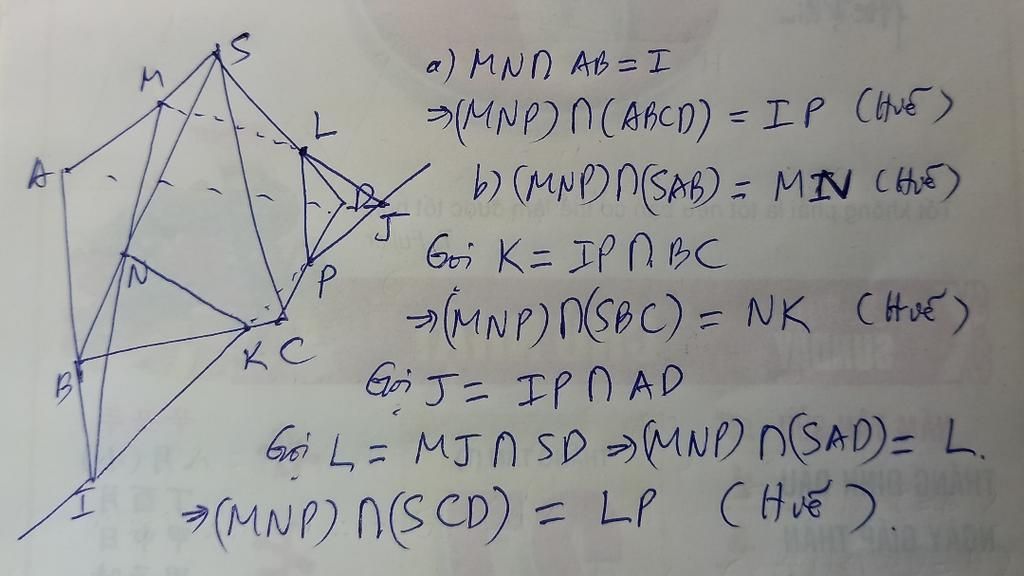 S
M
L
A
D
J
N
P
B
K C
I
a) MN∩ AB = I
⇒(MNP) ∩(ABCD) = IP (Huế)
b) (MNP)∩(SAB) = MN (Huế)
Gọi K = IP∩BC
⇒(MNP)∩(SBC) = NK (Huế)
Gọi J = IP∩AD
Gọi L = MJ∩SD ⇒(MNP)∩(SAD)= L.
⇒(MNP)∩(SCD) = LP (Huế).